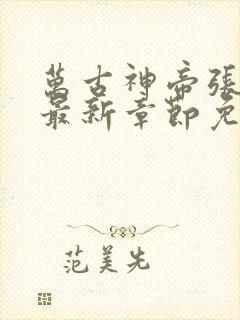 萬古神帝張
最新章節免
范美先